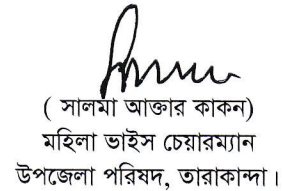 ( সালমা আক্তার কাকন)
মহিলা ভাইস চেয়ারম্যান
উপজেলা পরিষদ, তারাকান্দা।